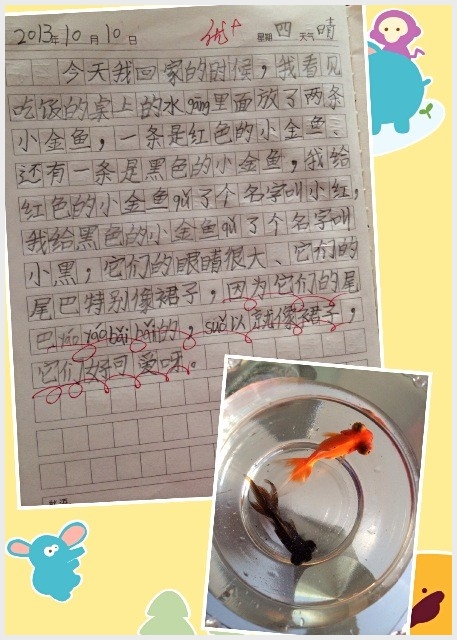 2013年10月10日 优+ 星期四 天气晴
今天我回家的时候，我看见
吃饭的桌上的水gāng里面放了两条
小金鱼，一条是红色的小金鱼、
还有一条是黑色的小金鱼，我给
红色的小金鱼qǔ了个名字叫小红，
我给黑色的小金鱼qǔ了个名字叫
小黑，它们的眼睛很大、它们的
尾巴特别像裙子，因为它们的尾
巴yáo yáo bǎi bǎi的，suǒ以就像裙子，
它们好可爱呀。